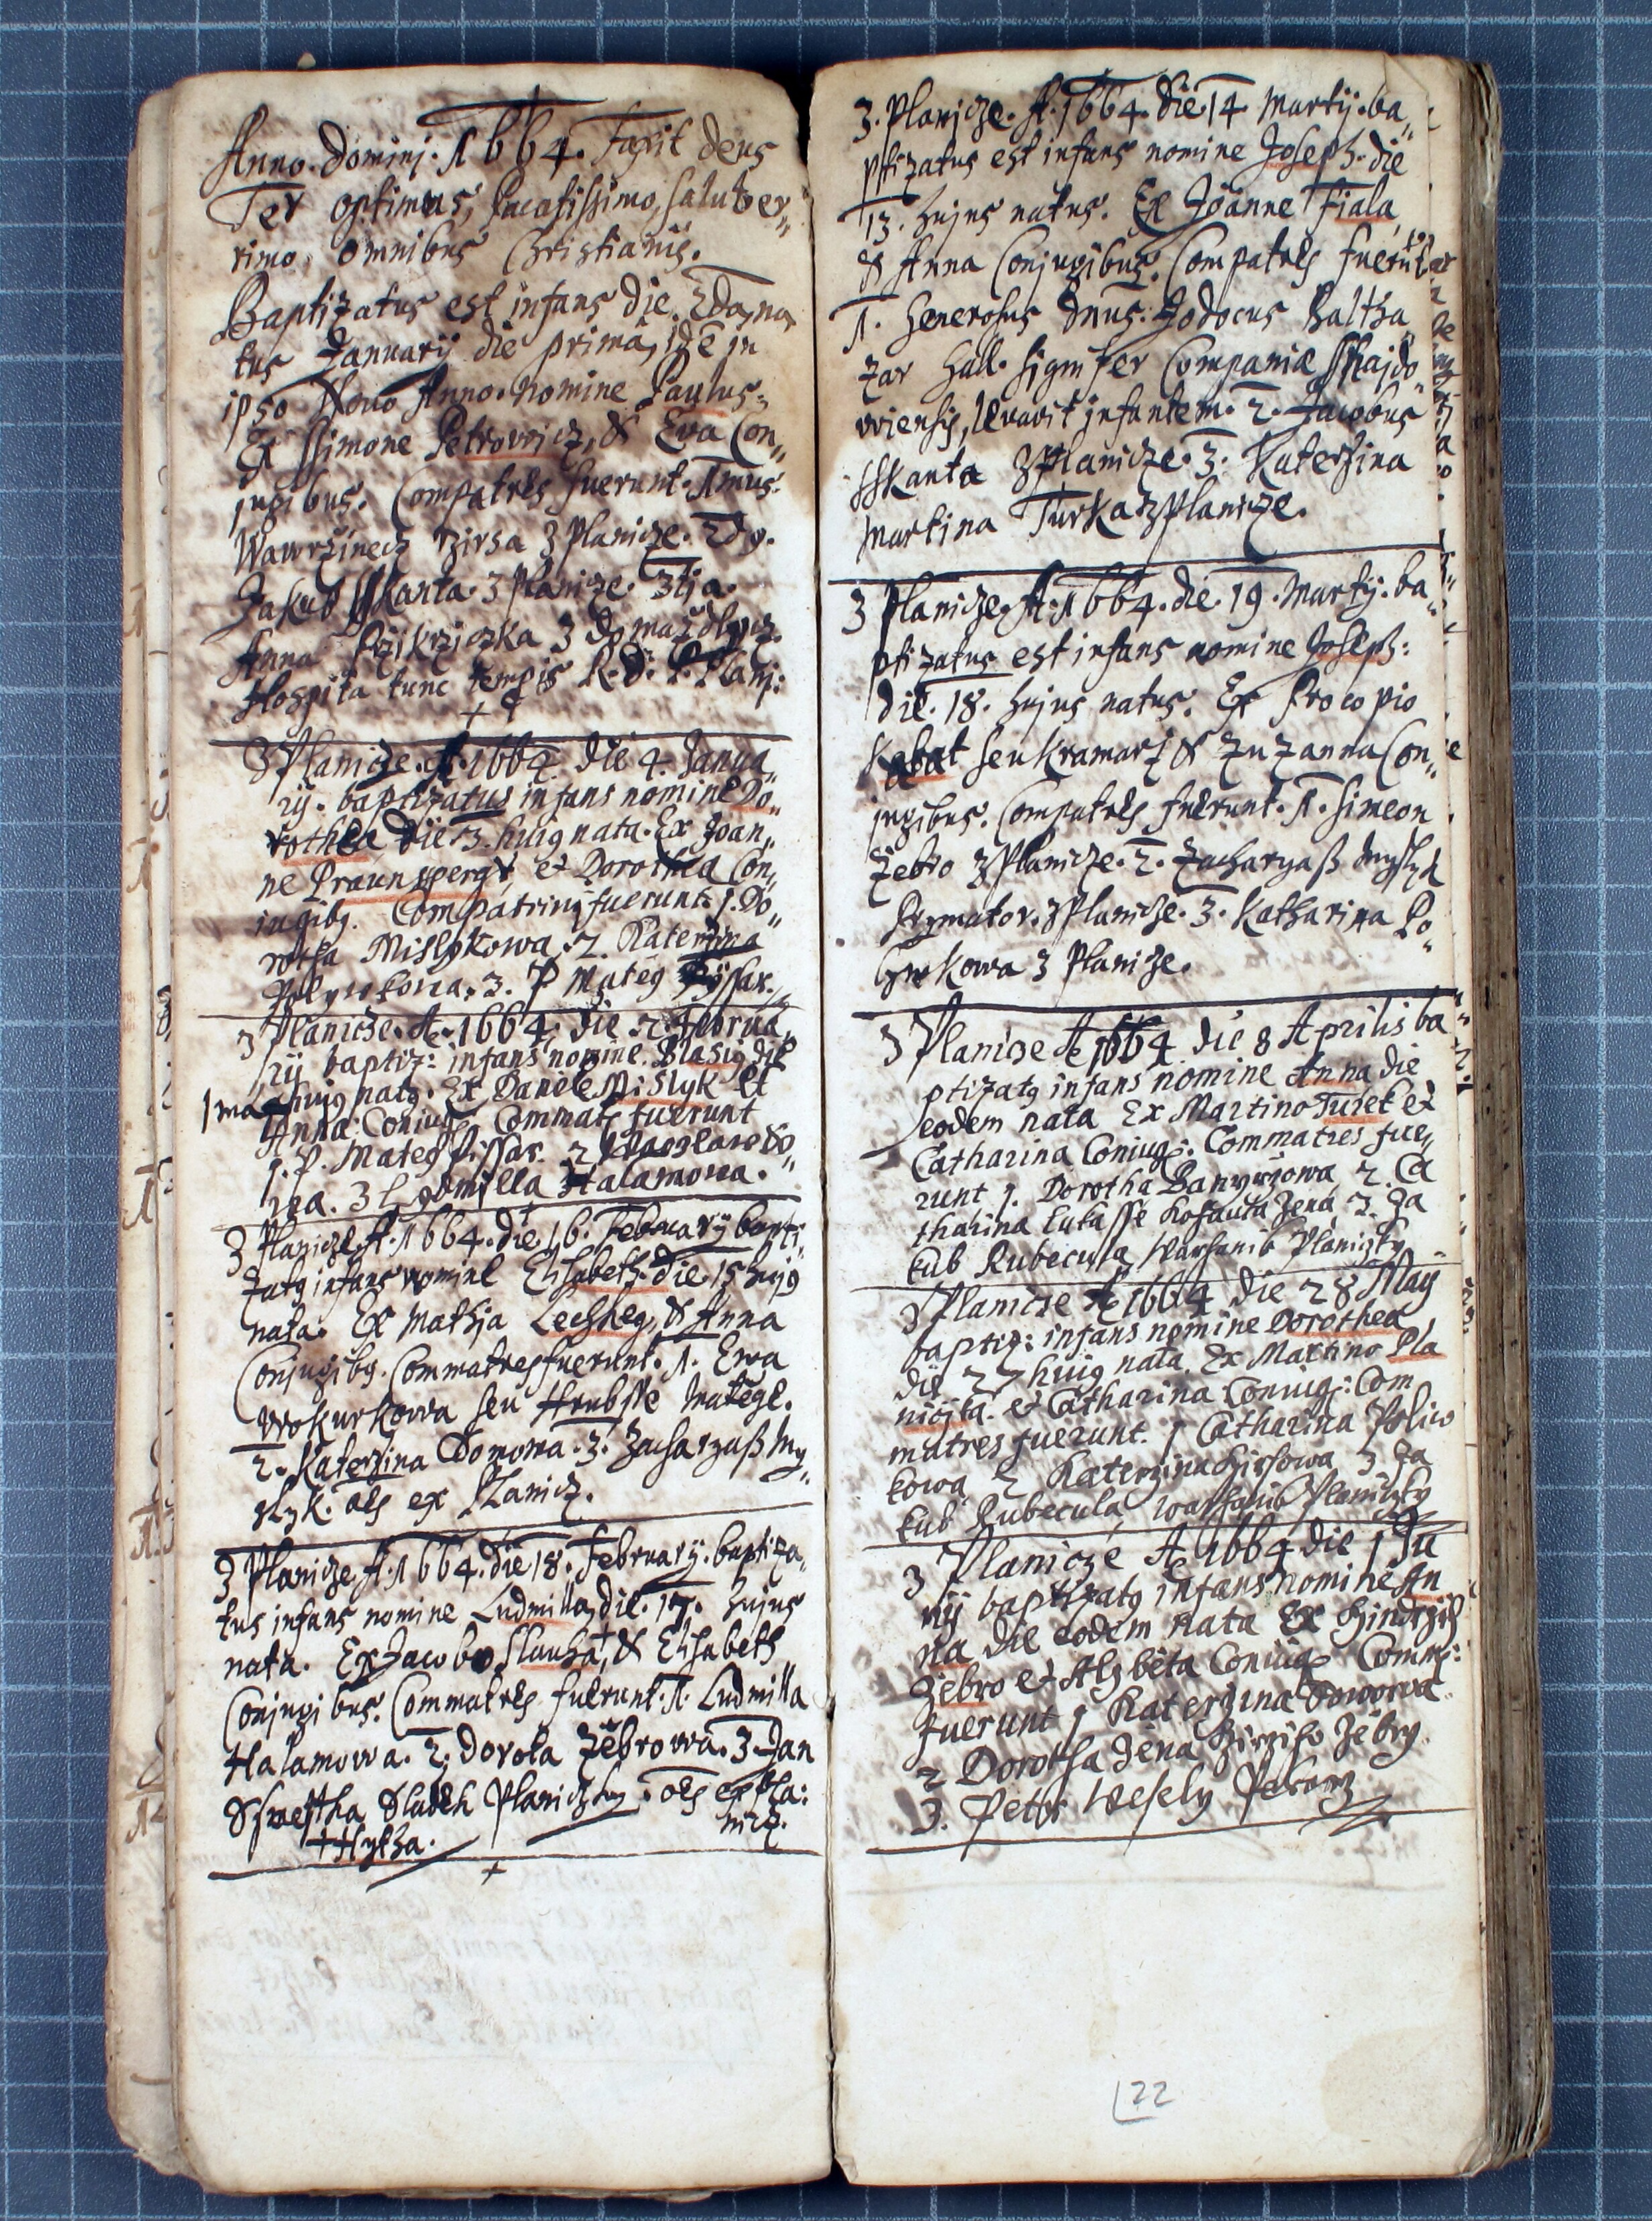 Anno. Dominj. 1664. Faxit deus
Ter optimus, Pacatissimo, saluber„
rimo, omnibus Christianis.
Baptizatus est infans die. 2da, na„
tus Januarij die prima, ide in
ipso Novo Anno. nomine Paulus.
Ex Simone Petrowicz, & Eva Con„
jugibus. Compatres fuerunt. 1mus.
Wawrzinecz Zirsa z Planicze. 2dg.
Jakub Skarta. z Planicze. 3tja.
Anna Przikrziczka z Domazdlycz.
Hospita tunc tempis R. D: P. Planj:
z Planicze. A. 1664. die 4. Janua„
rij. baptizatus infans nomine Do„
rothea, die 3. huig nata. Ex Joan„
ne Praunsperg, et Dorothea Con„
iugibg. Compatring fuerunt: 1. Do„
rotha Mislykowa. 2. Katerzina
Polywkowa. 3. P Mateg Pissar.
z Planicze. A. 1664. die. 2. Februa„
rij baptiz: infans nomine. Blasig die
1ma huig natg. Ex Daniele Mislyk et
Anna Coniug Commat fuerunt
1. P. Mateg Pissar. 2
wa. 3 Lydmilla Halamowa.
z Planicze A. 1664. die. 16. February bapti„
zatg infans nomine Elisabeth. Die. 15 hujg
nata. Ex Mathja Lechkeg, & Anna
Conjugibg. Commatres fuerunt. 1. Ewa
Wokurkowa seu Hrubsse Matege.
2. Katerzina Domowa. 3. Zacharyass My„
slyk. oes ex Planicz.
z Planicze A. 1664. die 18. February. baptiza„
tus infans nomine Ludmilla, die. 17. hujus
nata. Ex Jacobo Slauha, & Elisabeth
Conjugibus. Commatres fuerunt. 1. Ludmilla
Halamowa. 2. Dorota Zebrowa. 3. Jan
Sswestka Sladek Planiczky. oes ex Pla:
nicz.
Hytha.
z. Planicze. A. 1664. die. 14 Martij. ba„
ptizatus est infans nomine Joseph. die
13. hujus natus. Ex Joanne Fiala,
& Anna Conjugibus. Compatres fuerut.
1. Generosus Dnus: Jodocus Baltha„
zar Hall. signifer Compania Shajdo„
wiensis, levavit infantem. 2. Jacobus
Skanta z Planicze. 3. Katerzina
Martina Turka z Planicze.
z Planicze. A. 1664. die. 19. Martij. ba„
ptizatus est infans nomine Joseph:
die. 18. hujus natus. Ex Procopio
Kabat seu Kramarz & Zuzanna Con„
jugibus. Compatres fuerunt. 1. Simeon
Zebro z Planicze. 2. Zacharyass Myslyk
Prymator. z Planicze. 3. Katharina Po„
lywkowa z Planicze.
z Planicze A 1664 die 8 Aprilis ba„
ptizatg infans nomine Anna die
eodem nata Ex Martino Turek et
Catharina Coniug: Commatres fue„
runt 1. Dorotha 2. Ca
tharina Lukasse Kohauta Zena 3. Ja
kub Rubecula Warhanik Planiczky
z Planicze A 1664 die 28 May
baptiz: infans nomine Dorothea
die 27 huig nata Ex Martino Pla
niczka. et Catharina Coniug: Com
matres fuerunt. 1 Catharina Poliw
kowa 2 Katerzina Hirsowa 3 Ja
kub Rubecula Warhanik Planiczky
z Planicze A 1664 die 1 Ju
nij baptizatg infans nomine An
na die eodem nata Ex Hindrzich
Zebro et Alzbeta Coniug Comm:
fuerunt 1 Katerzina
2 Dorotha Zena Zebry
3. Petr Wesely Pekarz
22